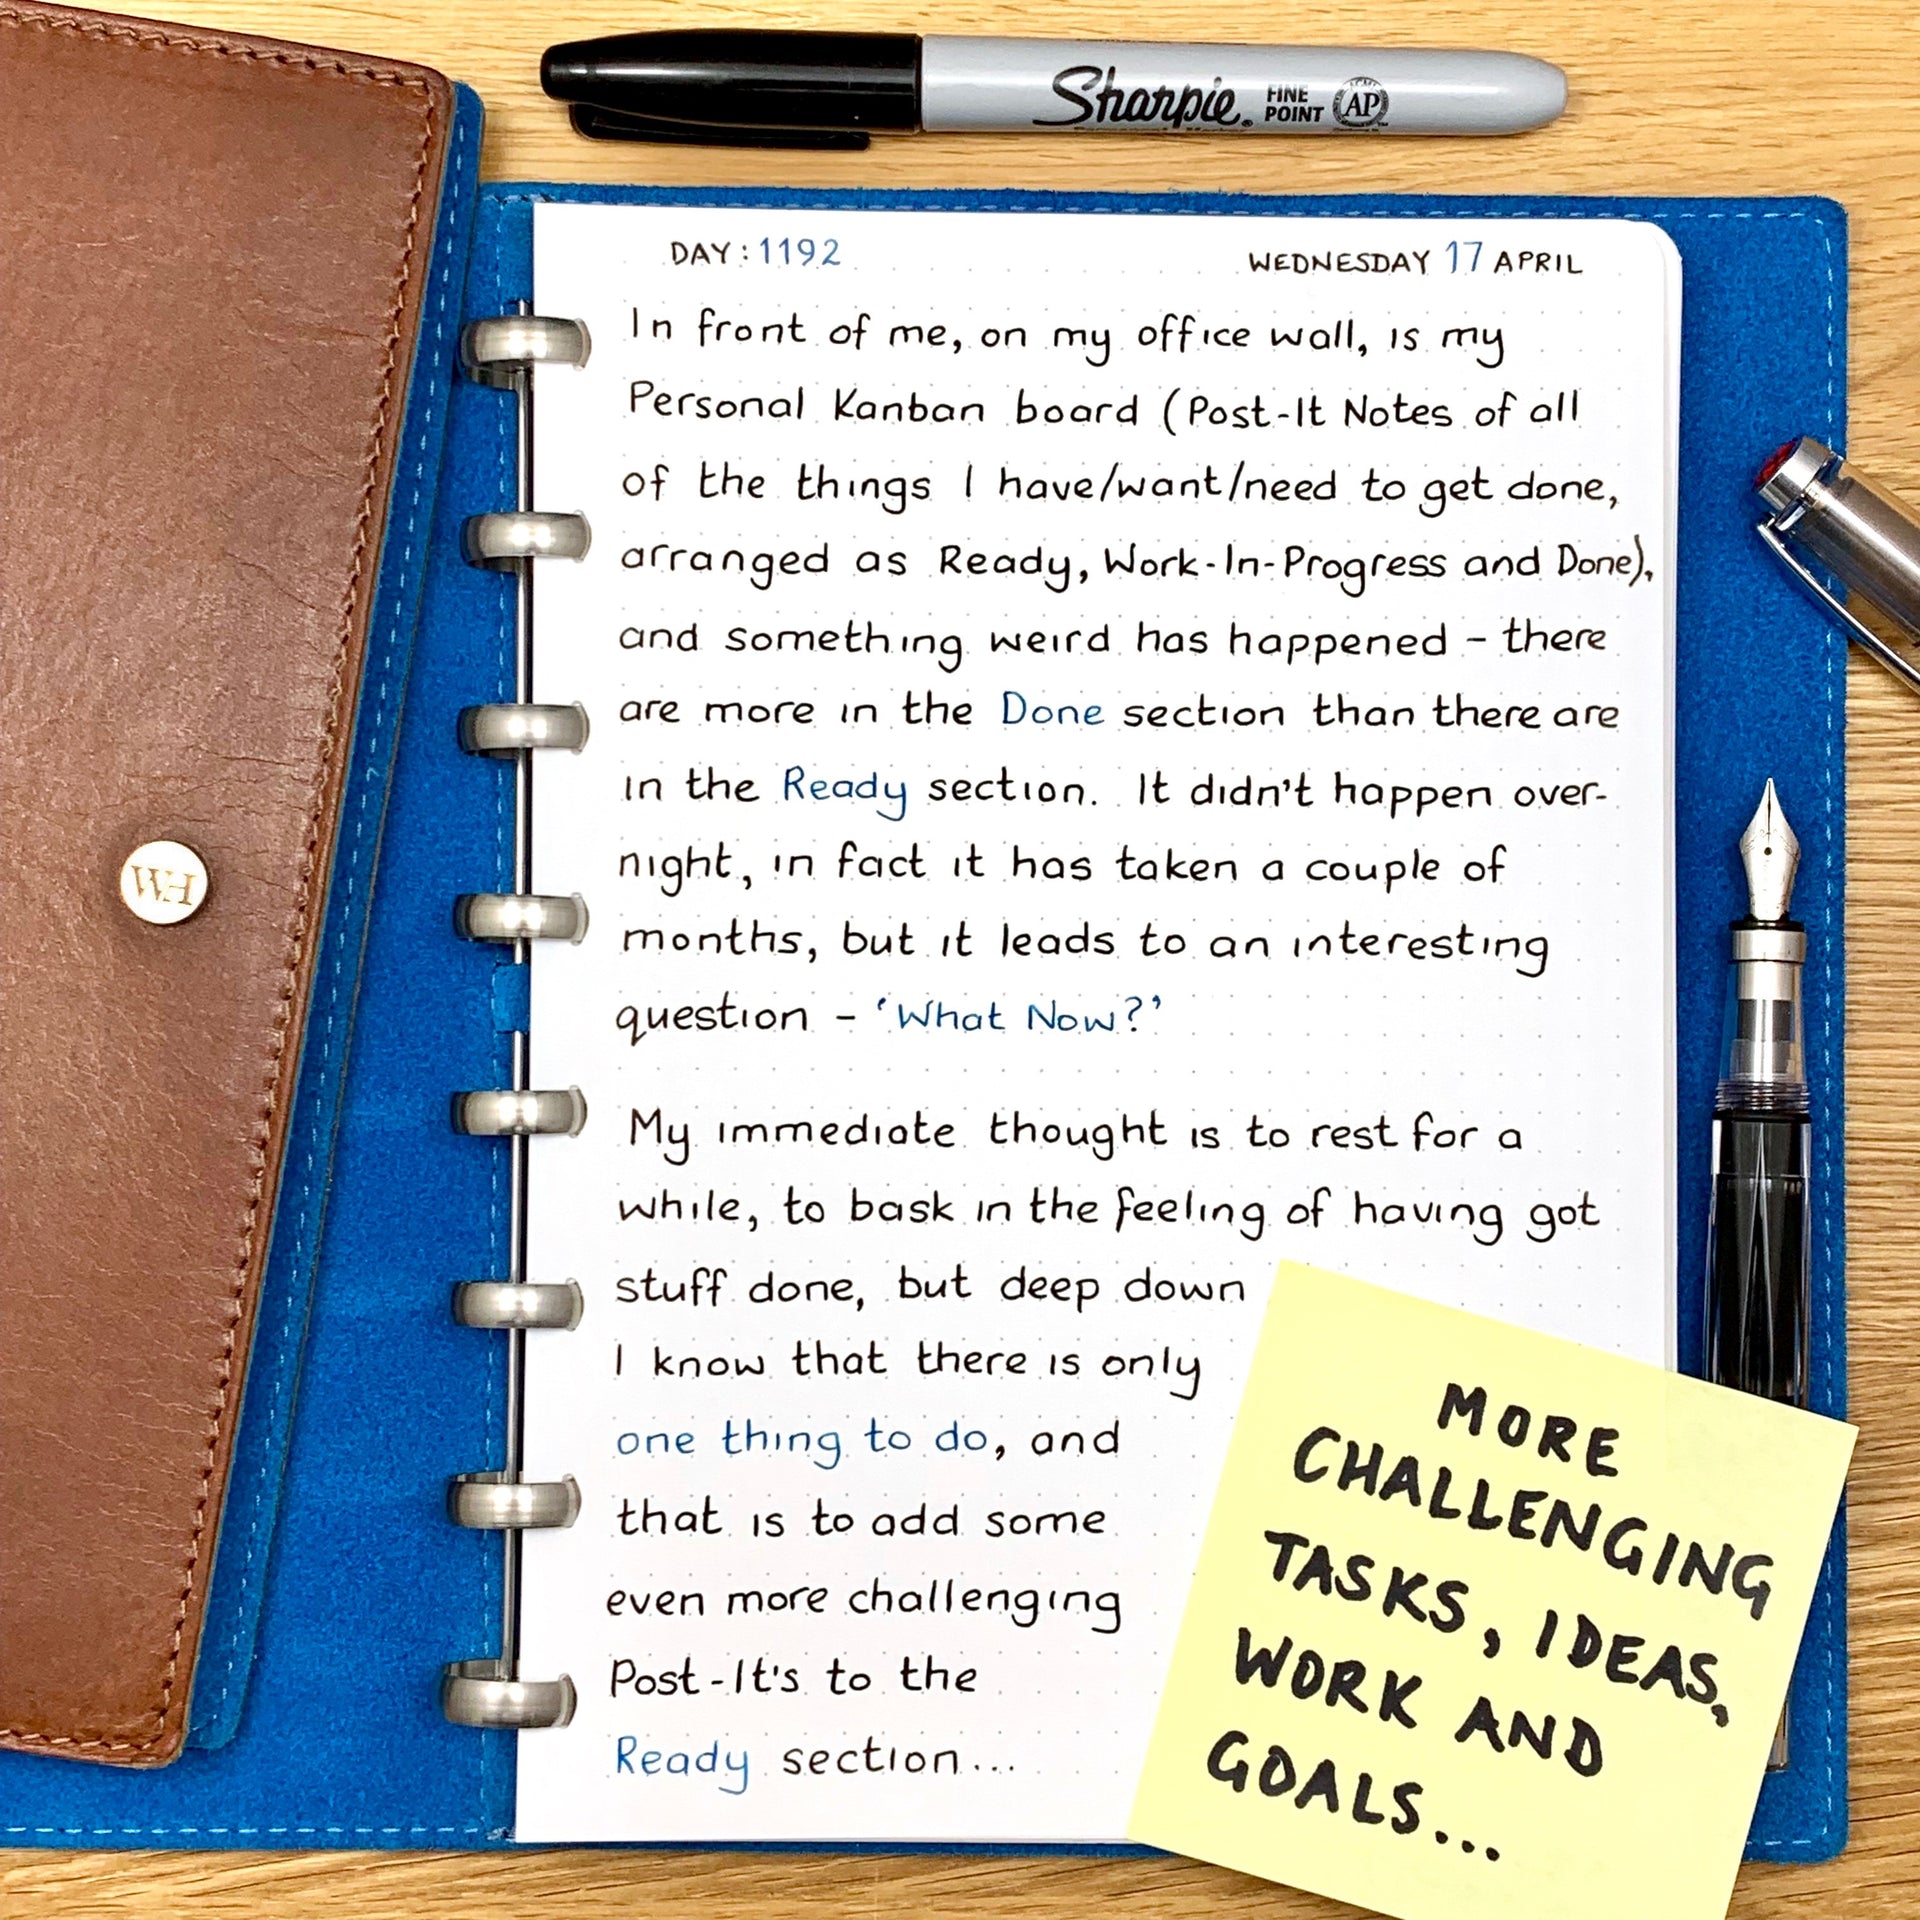 Sharpie. FINE POINT AP
DAY: 1192 WEDNESDAY 17 APRIL
In front of me, on my office wall, is my
Personal Kanban board (Post-It Notes of all
of the things I have/want/need to get done,
arranged as Ready, Work-In-Progress and Done),
and something weird has happened - there
are more in the Done section than there are
in the Ready section. It didn't happen over-
night, in fact it has taken a couple of
months, but it leads to an interesting
question - 'What Now?'
My immediate thought is to rest for a
while, to bask in the feeling of having got
stuff done, but deep down
I know that there is only
one thing to do, and
that is to add some
even more challenging
Post-It's to the
Ready section...
MORE
CHALLENGING
TASKS, IDEAS,
WORK AND
GOALS...
WH